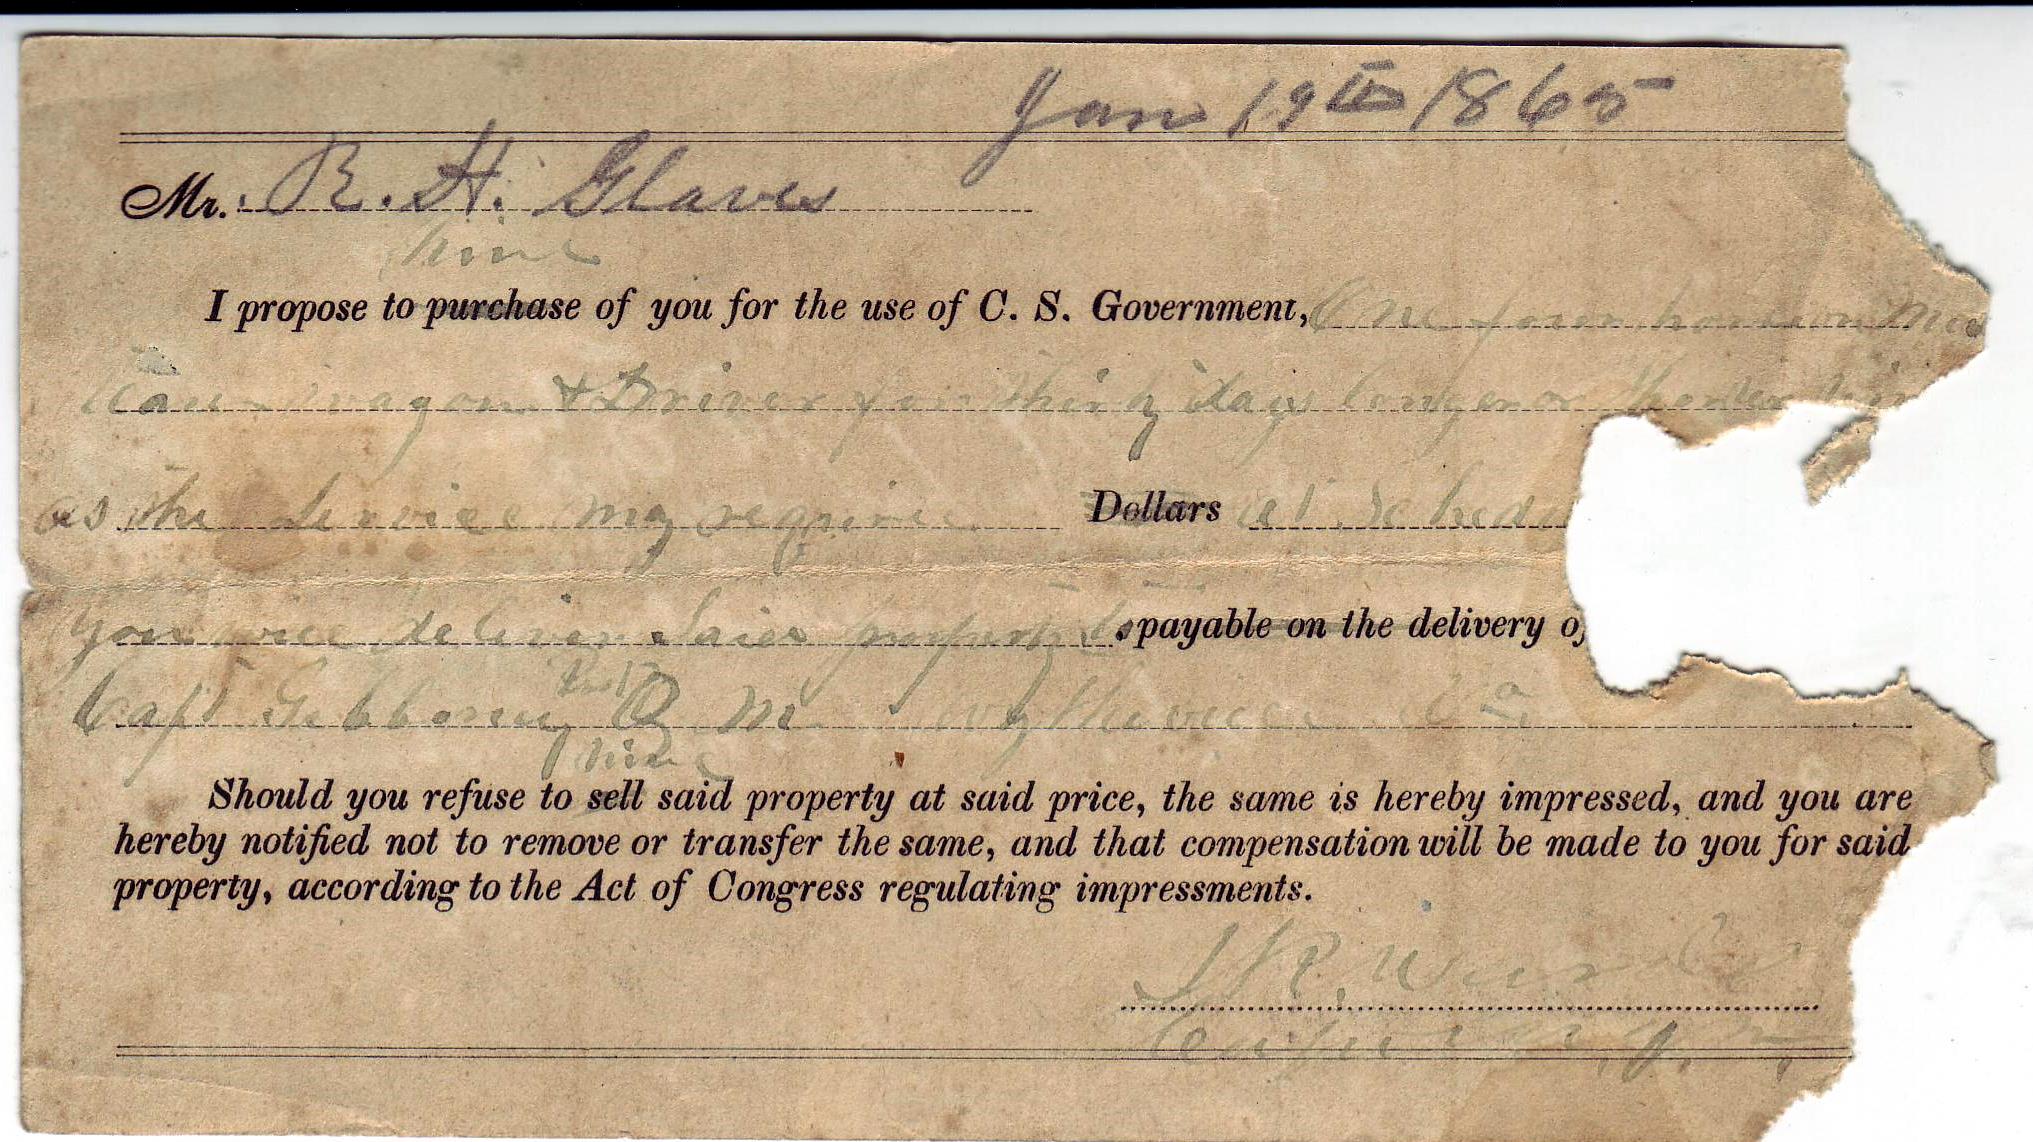 Jan 19th 1865
Mr. R. H. Glaves
hire
I propose to purchase of you for the use of C. S. Government, One four horse
wagon & Driver for thirty days longer or
as the Service may require Dollars at Sched
you will deliver Said property to payable on the delivery of
Capt Gibboney Post Q M Wytheville Va
hire
Should you refuse to sell said property at said price, the same is hereby impressed, and you are
hereby notified not to remove or transfer the same, and that compensation will be made to you for said
property, according to the Act of Congress regulating impressments.
J R.